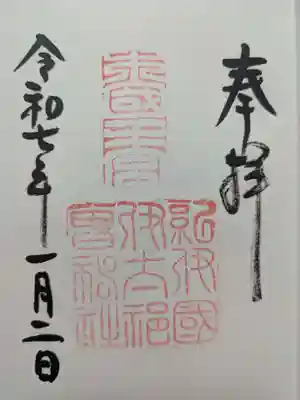 奉拝
紀伊國
伊太祁
曽神社
令和七年一月二日